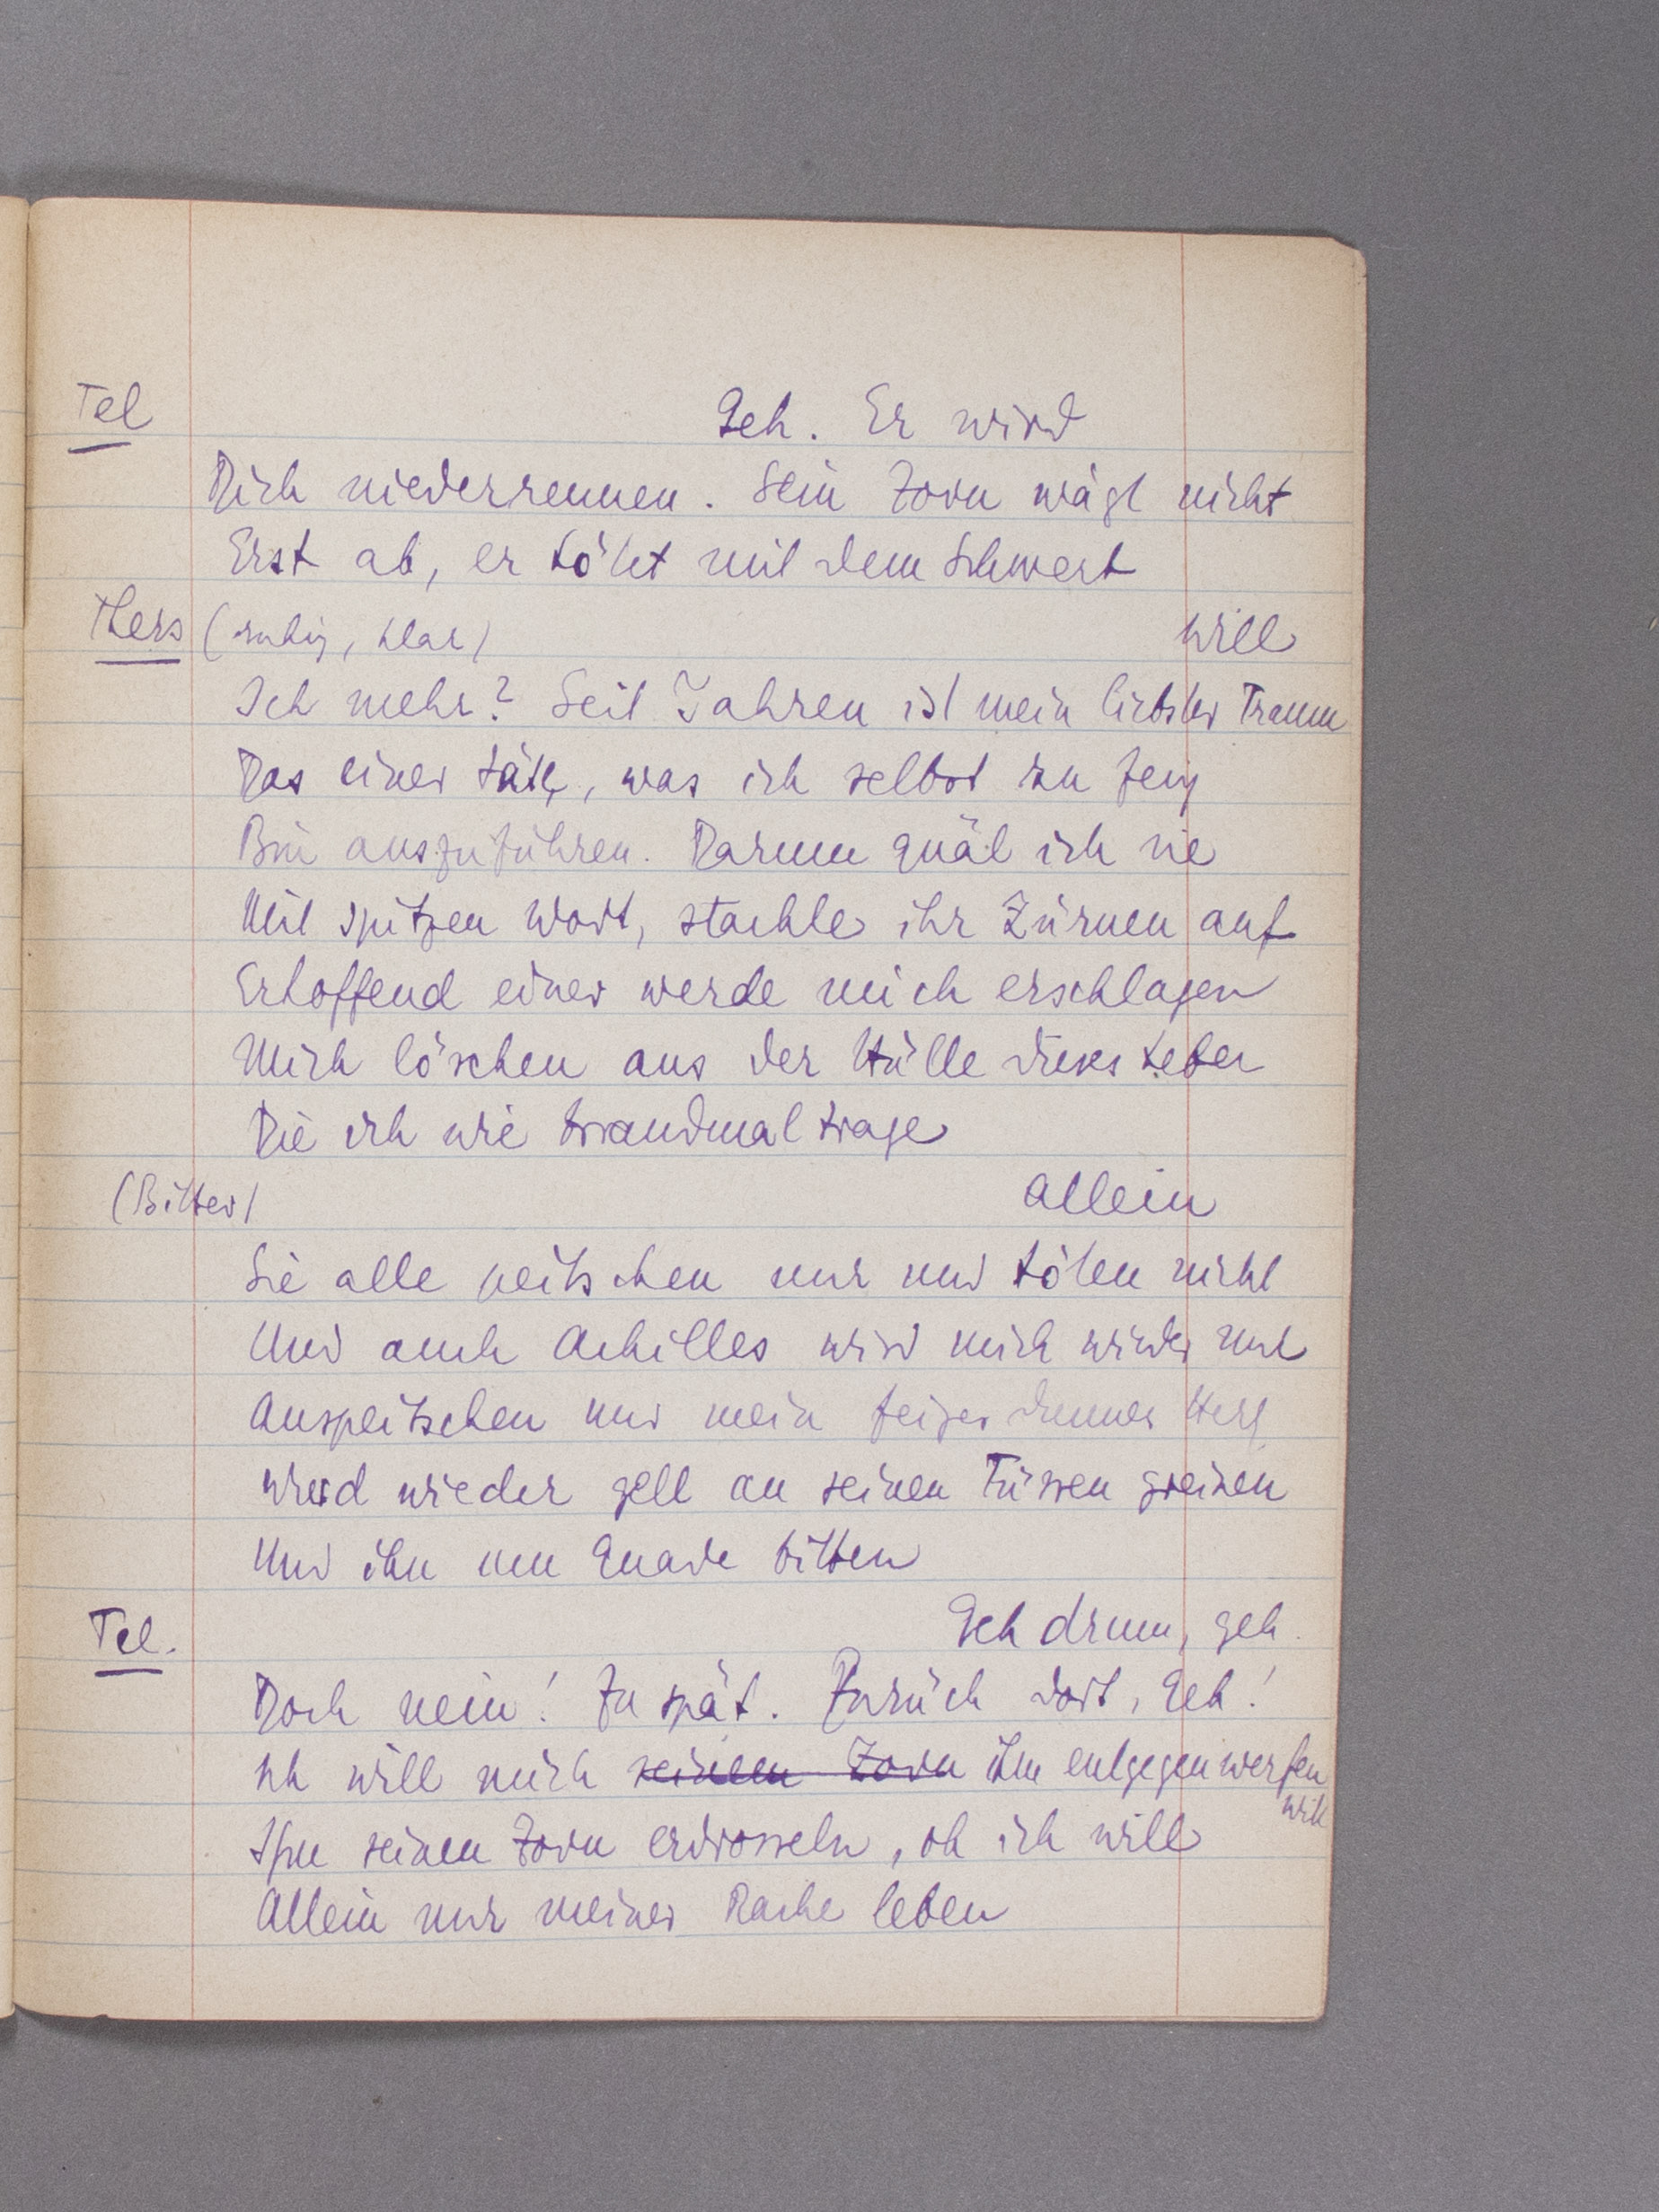 Tel Geh. Er wird
Dich niederrennen. Sein Zorn wägt nicht
Erst ab, er tötet mit dem Schwert
Thers (ruhig, klar) will
Ich mehr? Seit Jahren ist mein liebster Traum
Das einer täte, was ich selbst zu feig
Bin auszuführen. Darum quäl ich sie
Mit spitzen Wort, stachle ihr Zürnen auf
Erhoffend einer werde mich erschlagen
Mich löschen aus der Hülle dieses
Die ich wie brandmal trage
(Bitter) allein
Sie alle peitschen nur und töten nicht
Und auch Achilles wird mich wieder nur
Auspeitschen und mein feiges Herz
Wird wieder gell an seinen Füssen greinen
Und ihn um Gnade bitten
Tel. Geh drum, geh.
Doch nein! Zu spät. Zurück dort, Geh!
Ich will mich seinem Zorn ihm entgegenwerfen
will
Ihm seinen Zorn erdrosseln, oh ich will
Allein nur meiner Rache leben